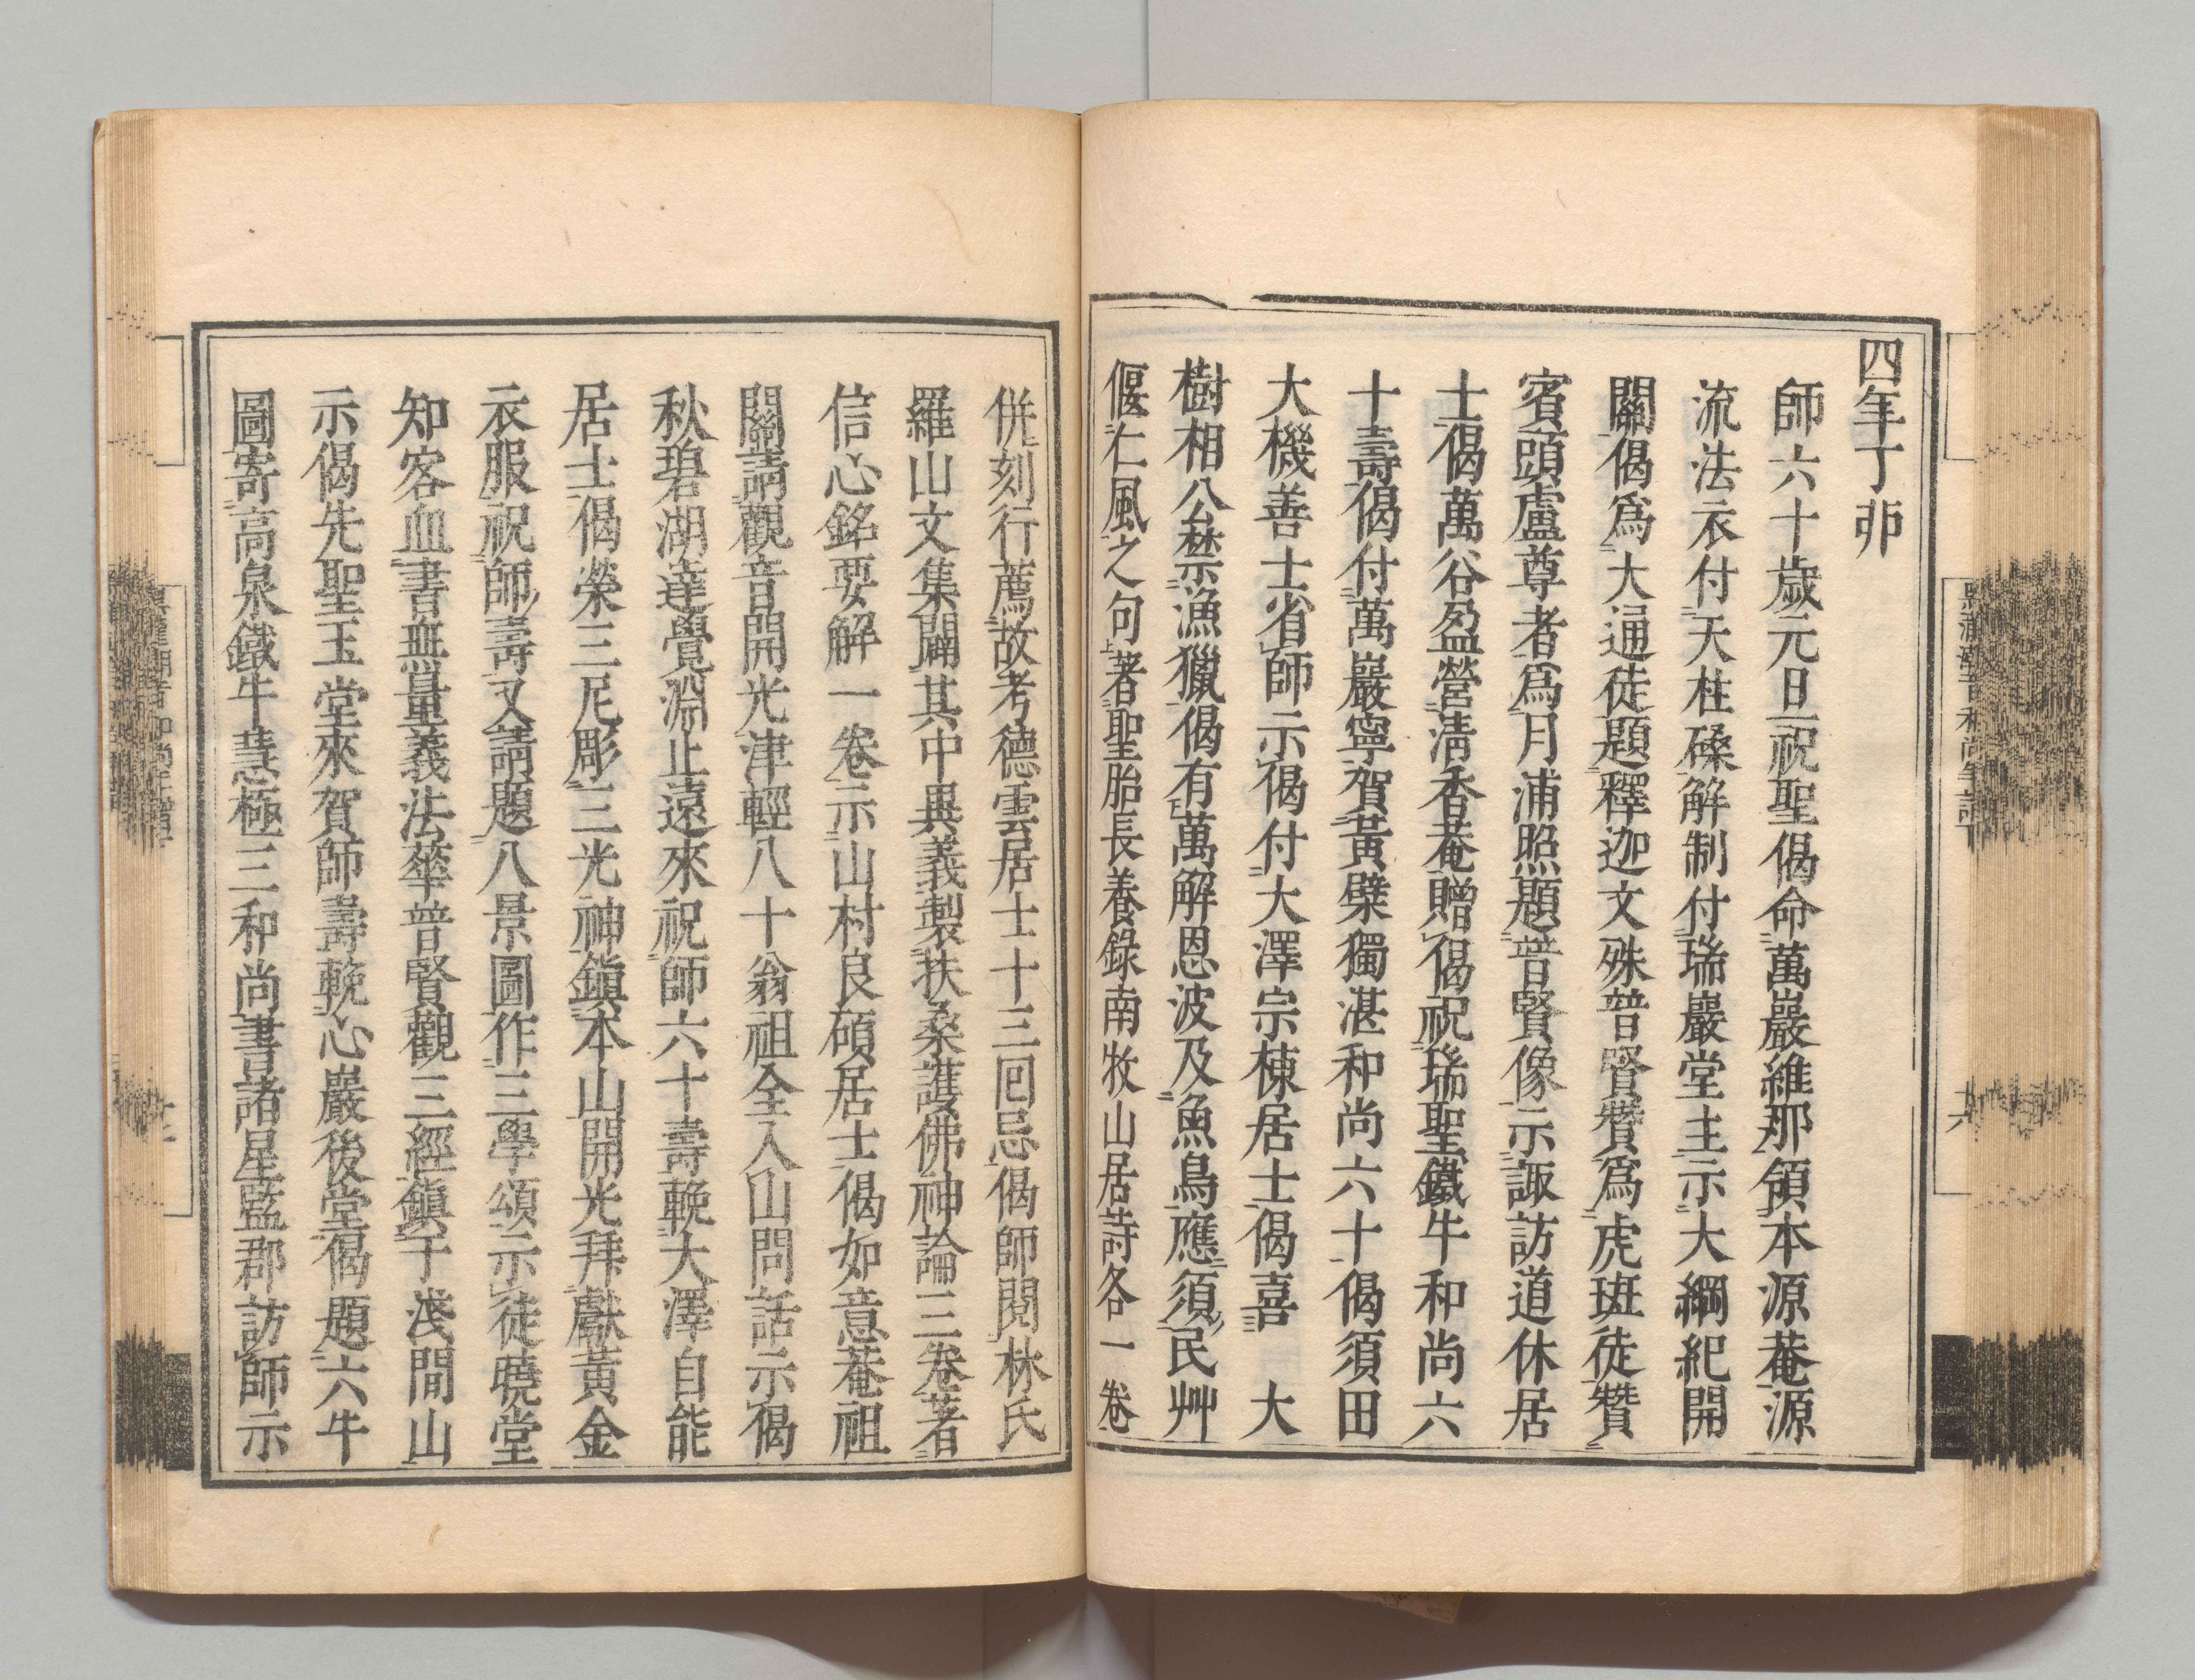 四年丁卯
師六十歲元旦祝聖偈命萬巖維那領本源菴源
流法衣付天柱磉解制付瑞巖堂主示大綱紀開
關偈爲大通徒題釋迦文殊普賢贊爲虎班徒贊
賓頭盧尊者爲月浦照題普賢像示諏訪道休居
士偈萬谷盈營淸香菴贈偈祝瑞聖鐵牛和尚六
十壽偈付萬巖寧賀黃檗獨湛和尚六十偈須田
大機善士省師示偈付大澤宗棟居士偈喜　大
樹相公禁漁獵偈有萬解恩波及魚鳥應須民艸
偃仁風之句著聖胎長養錄南牧山居詩各一卷
併刻行薦故考德雲居士十三回忌偈師閱林氏
羅山文集闢其中異義製扶桑護佛神論三卷著
信心銘要解一卷示山村良碩居士偈如意菴祖
關請觀音開光津輕八十翁祖全入山問話示偈
秋碧湖達覺淵止遠來祝師六十壽輓大澤自能
居士偈榮三尼彫三光神鎭本山開光拜獻黃金
衣服祝師壽又請題八景圖作三學頌示徒曉堂
知客血書無量義法華普賢觀三經鎭于淺間山
示偈先聖玉堂來賀師壽輓心巖後堂偈題六牛
圖寄高泉鐵牛慧極三和尚書諸星監郡訪師示